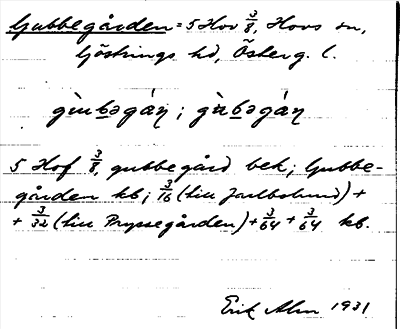 Gubbegården = 5 Hov 3/8, Hovs sn,
Göstrings hd, Österg. l.
gùbəgáṇ ; gùbəgáṇ
5 Hof 3/8, gubbegård bek; Gubbe-
gården kb; 3/16 (till Jarlbolund) +
+ 3/32 (till Pryssegården) + 3/64 + 3/64 kb.
Erik Alm 1931